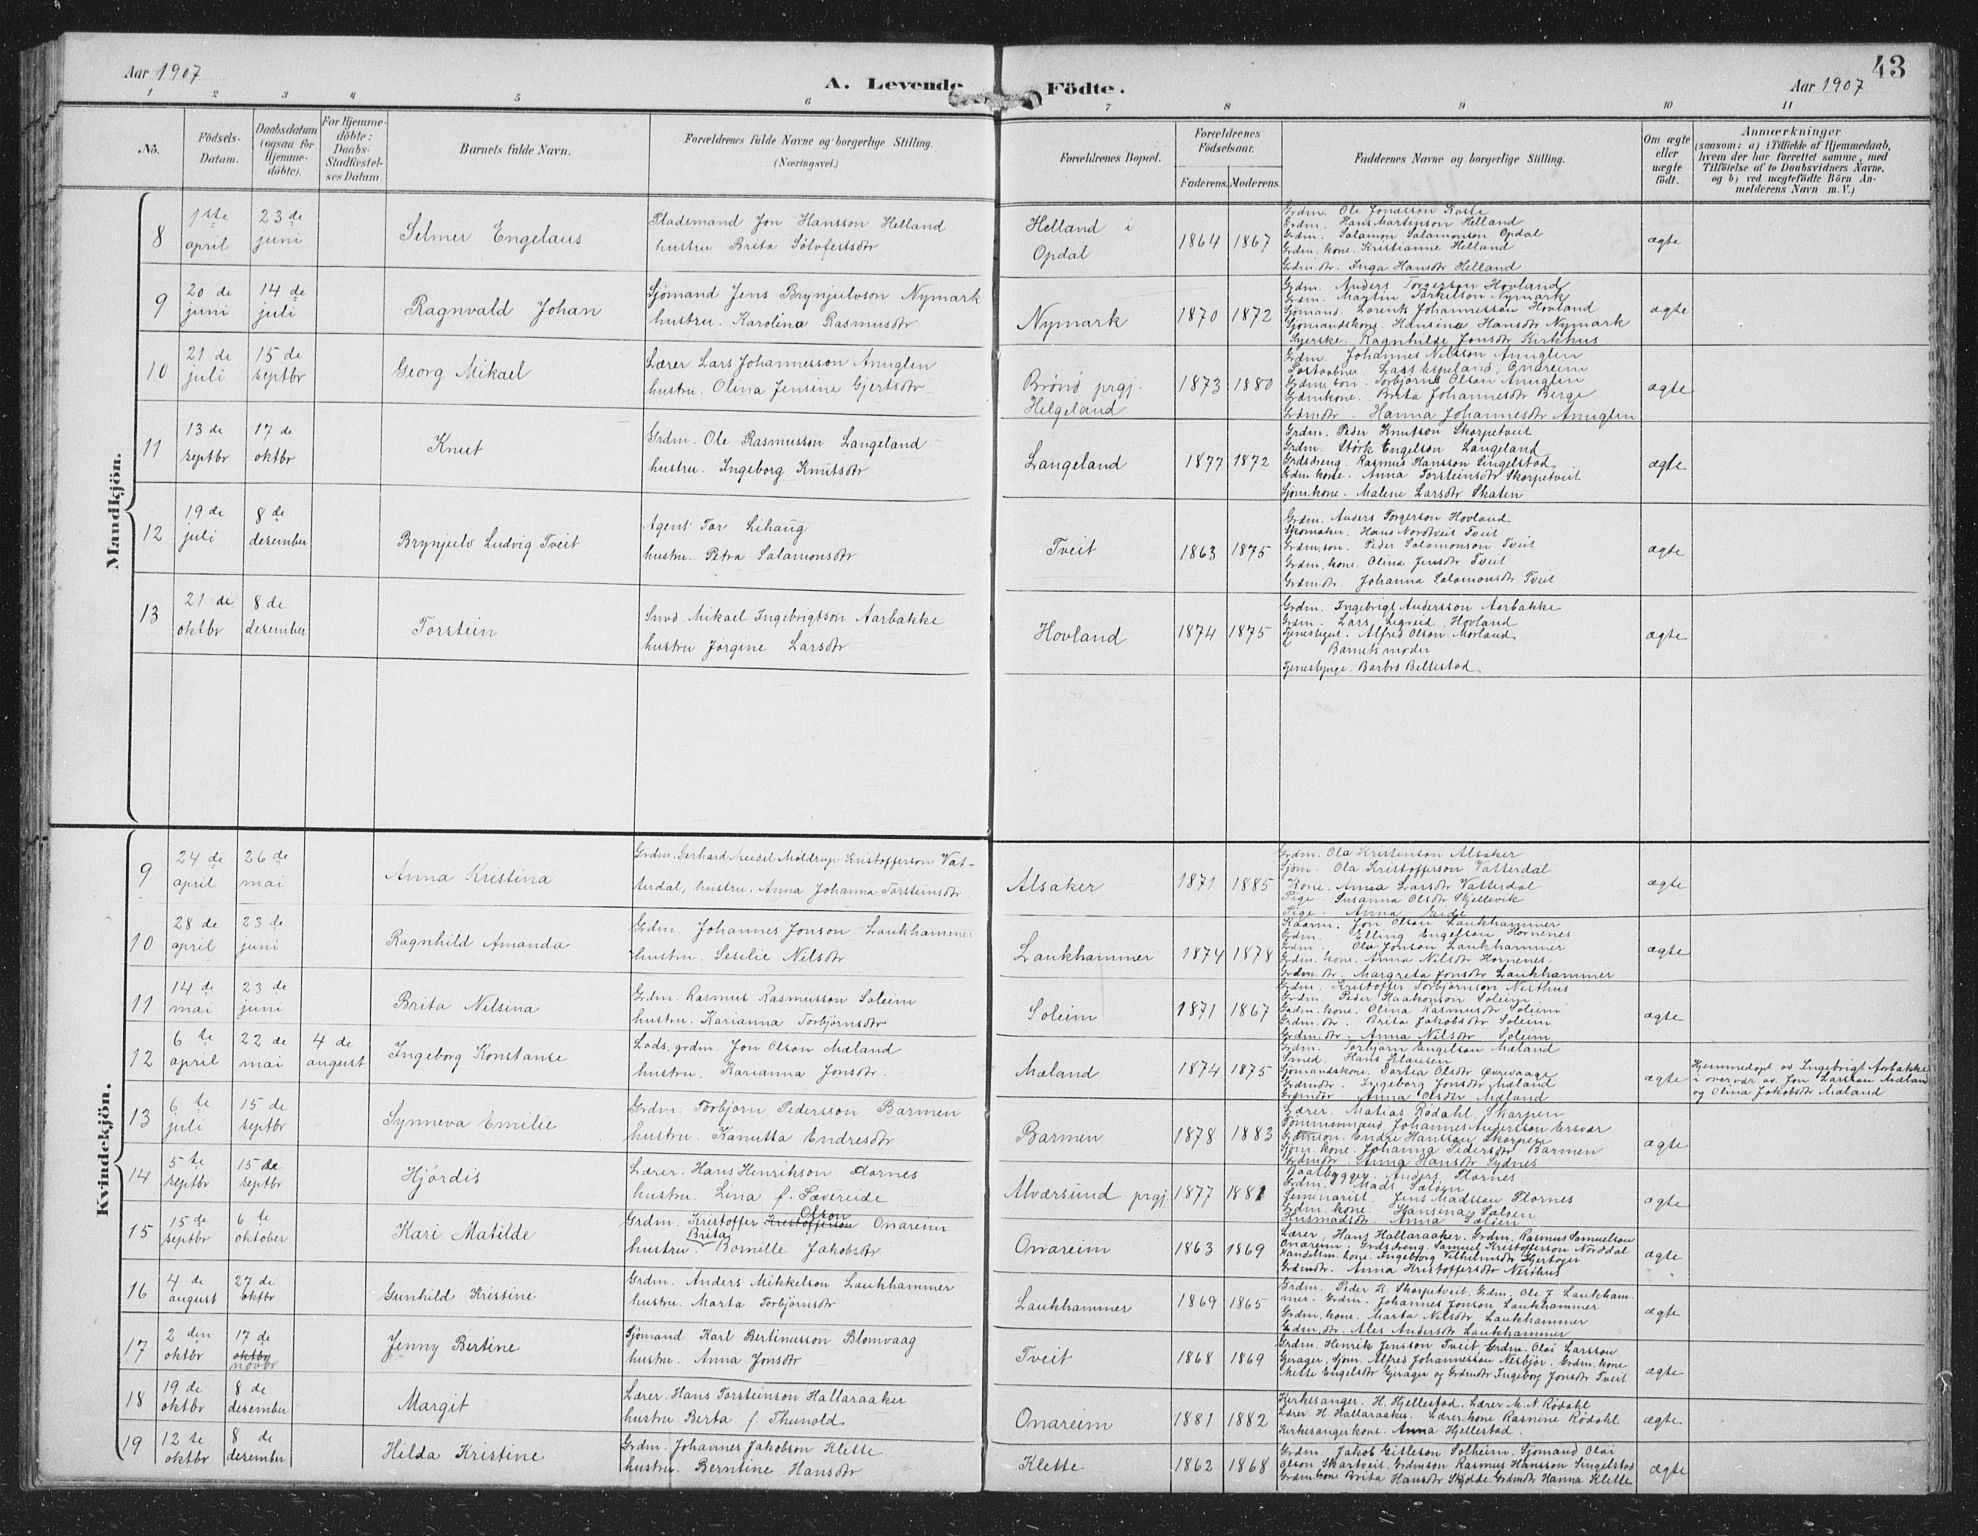 Aar 1907
A. Levende Födte.
Aar 1907
43
1 2 3 4 5 6 7 8 9 10 11
No.
Födsels-Datum.
Daabsdatum (ogsaa for Hjemme-döbte).
For Hjemme-döbte: Daabs-Stadfæstel-ses Datum.
Barnets fulde Navn.
Forældrenes fulde Navne og borgerlige Stilling. (Næringsvei.)
Forældrenes Bopæl.
Forældrenes Födselsaar.
Faderens. Moderens.
Faddernes Navne og borgerlige Stilling.
Om ægte eller uægte födt.
Anmærkninger
(saasom: a) i Tilfælde af Hjemmedaab, hvem der har forrettet samme, med Tilföielse af to Daabsvidners Navne, og b) ved uægtefödte Börn Anmelderens Navn m. V.)
Mandkjön.
8 1ste april 23 de juni Selmer Engelaus
Plademand Jon Hansson Helland
hustru Brita Sölvfestsdtr
Helland i Opdal 1864 1867
Grdm. Ole Jonasson Kaste
Grdm. Hans Martinson Helland
Grdm. Salamon Salamonson Opdal
Grdm. kone. Kristianne Helland
Grdm.dtr. Inga Hansdtr Helland
ægte
9 20 de juni 14 de juli Ragnvald Johan
Sjömand Jens Brynjulvson Nymark
hustru. Karolina Rasmusdtr
Nymark 1870 1872
Grdm. Anders Torgerson Hovland
Grdm. Martin Torkelson Nymark
Sjömand. Lorents Johannesson Hovland
Sjömandskone. Hansina Hansdtr Nymark
Syerske. Ragnhilde Jonsdtr Kirkhus
ægte
10 21 de juli 15 de septbr Georg Mikael
Lærer Lars Johannesson Anuglen
hustru. Olina Jensine Gjertsdtr
Brönö prgj. Helgeland 1873 1880
Grdm. Johannes Nilsson Anuglen
Lars Espeland, Onareim
Grdm. son. Torbjörn Olson Anuglen
Grdmkone. Brita Johannesdtr Berge
Grdmdtr. Hanna Johannesdtr Anuglen
ægte
11 13 de septbr 17 de oktbr Knut
Grdm. Ole Rasmusson Langeland
hustru. Ingeborg Knutsdtr
Langeland 1877 1872
Grdm. Peder Knutson Skorpetveit
Grdm. Störk Engelson Langeland
Grdsdreng. Rasmus Hansson Singelstad
Grdm kone. Anna Torsteinsdtr Skorpetveit
Sjöm.kone. Malene Larsdtr Skaten
ægte
12 19 de juli 8 de desember Brynjulv Ludvig Tveit
Agent Tor Lihaug
hustru. Petra Salamonsdtr
Tveit 1863 1875
Grdm. Anders Torgerson Hovland
Skomaker. Hans Nordtveit Tveit
Grdm.son. Peder Salomonson Tveit
Grdm. kone. Olina Jensdtr Tveit
Grdmdtr. Johanna Salamonsdtr Tveit
ægte
13 21 de oktbr 8 de desember Torstein
Smed. Mikael Ingebrigtson Aarbakke
hustru Jörgine Larsdtr
Hovland 1874 1875
Grdm. Ingebrigt Andersson Aarbakke
Grdm. Lars Legreid, Hovland
Tjenestegut. Alfred Olson Morland
Barnets moder
Tjenestepige. Barbro Bellestad
ægte
Kvindekjön.
9 24 de april 26 de mai Anna Kristina
Grdm. Gerhard Meidel Möldrup Kristofferson Vat-
terdal, hustru. Anna Johanna Torsteinsdtr.
Alsaker 1871 1885
Grdm. Ola Kristenson Alsaker
Sjöm. Ola Kristofferson Vatterdal
Kone. Anna Larsdtr Vatterdal
Pige. Susanna Olsdtr Skjellevik
Pige. Anna Eide
ægte
10 28 de april 23 de juni Ragnhild Amanda
Grdm. Johannes Jonson Laukhammer
hustru. Seselie Nilsdtr
Laukhammer 1874 1878
Kaarm. Jon Olson Laukhammer
Grdm. Elling Engelson Hornenes
Grdm. Ola Jonson Laukhammer
Grdm. kone. Anna Nilsdtr Hornenes.
Grdm. dtr. Margreta Jonsdtr Laukhammer
ægte
11 14 de mai 23 de juni Brita Nilsina
Grdm. Rasmus Rasmusson Soleim
hustru. Karianna Torbjörnsdtr
Soleim 1871 1867
Grdm. Kristoffer Torbjörnson Nesthus
Grdm. Peder Haakonson Soleim
Grdm. kone. Olina Rasmusdtr Soleim
Grdm. dtr. Brita Jakobsdtr Soleim
Grdm.dtr. Anna Nilsdtr Soleim
ægte
12 6 te april 22 de mai 4 de august Ingeborg Konstanse
Lods, grdm. Jon Olson Mæland
hustru. Karianna Jonsdtr.
Mæland 1874 1875
Grdm. Torbjörn Engelson Mæland
Smed. Hans Klausen
Sjömandskone. Partea Olsdtr Övrevaage
Grdmdtr. Ingeborg Jonsdtr Mæland
Grdmdtr Anna Olsdtr Mæland
ægte
Hjemmedöpt av Ingebrigt Aarbakke
i overvær av Jon Larsson Mæland
og Olina Jakobsdtr Mæland
13 6 te juli 15 de septbr Synneva Emilie
Grdm. Torbjörn Pedersson Barmen
hustru. Kanutta Endresdtr
Barmen 1878 1883
Lærer. Matias Rödahl, Skorpen
Johannes Anderson Ersvær
Grdmson. Endre Hansson Skorpen
Sjöm. kone. Johanna Pedersdtr Barmen
Grdmdtr. Anna Hansdtr Sydnes
ægte
14 5 te septbr 15 de septbr Hjördis
Lærer. Hans Henrikson Flornes
hustru. Lina f. Sævereide
Alværsund prgj 1877 1881
Baatbygger. Anders Flornes
Grdm. Mads Sæleen
Seminarist. Jens Madsson Flornes
Grdm. kone. Hansina Sæleen
Husmadsdtr Anna Sæleen
ægte
15 15 de septbr 6 te oktober Kari Matilde
Grdm. Kristoffer Kristofferson Olson Onareim
hustru. Brita Bomille Jakobsdtr
Onareim 1863 1869
Lærer, Hans Hallaraaker. Grdm. Rasmus Samuelson
Onareim. Grdsdreng. Samuel Kristofferson Norddal
Handelsm. kone. Ingeborg Vilhelmsdtr Hjertager
Grdmdtr. Anna Kristoffersdtr Nesthus
ægte
16 4 de august 27 de oktbr Gunhild Kristine
Grdm. Anders Mikkelson Laukhammer
hustru. Marta Torbjörnsdtr
Laukhammer 1869 1865
Grdm. Peder K. Skorpetveit. Grdm. Ole J. Laukham-
mer. Grdm. Johannes Jonson Laukhammer
Grdm. kone. Marta Nilsdtr Laukhammer
Grdm. dtr. Ales Andersdtr Laukhammer
ægte
17 2 den oktbr 17 de oktbr novbr Jenny Bertine
Sjömand Karl Bertinusson Blomvaag
hustru. Anna Jonsdtr
Tveit 1868 1869
Grdm. Henrik Jensson Tveit. Grdm. Olai Larsson
Gerager. Sjöm. Alfred Johannesson Nesbjör. Grdm. kone
Mette Engelsdtr Gerager og Grdmdtr Ingeborg Jonsdtr Tveit
ægte
18 19 de oktbr 8 de desember Margit
Lærer. Hans Torsteinson Hallaraaker
hustru. Berta f. Thunold.
Onareim 1881 1882
Kirkesanger. H. Hjellestad. Lærer M. N. Rödahl
Lærer. H. Hallaraaker. Lærer.kone Rasmine Rödahl
Kirkesangerkone. Anna Hjellestad.
ægte
19 12 te oktbr 8 de desember Hilda Kristine
Grdm. Johannes Jakobson Klette
hustru. Berntine Hansdtr
Klette 1862 1868
Grdm. Jakob Gitleson Solheim. Sjömand Olai
Olson Skartveit. Grdmson Rasmus Hansson Singelstad
Grdm. kone Brita Hansdtr Skjelde. Grdmdtr Hanna Klette
ægte